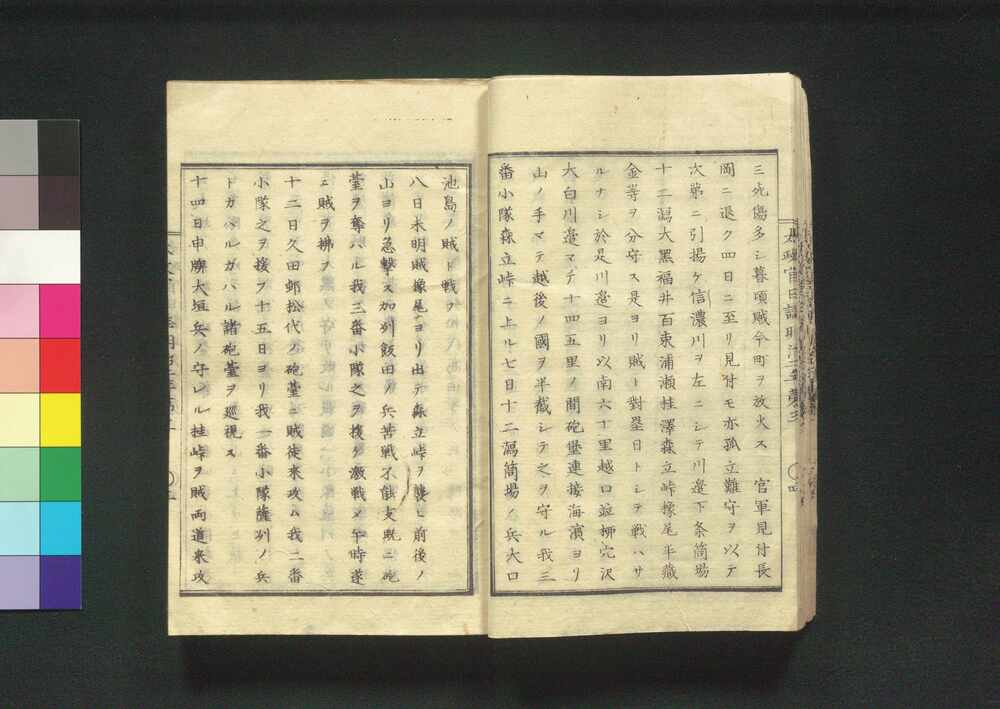 三死傷多シ暮頃賊今町ヲ放火ス　官軍見付長
岡ニ退ク四日ニ至リ見付モ亦孤立難守ヲ以テ
次第ニ引揚ケ信濃川ヲ左ニシテ川邉下条筒場
十二潟大黒福井百束浦瀬桂澤森立峠椽尾半藏
金等ヲ分守ス是ヨリ賊ト對塁日トシテ戦ハサ
ルナシ於是川邉ヨリ以南六十里越口並柳穴沢
大白川邉マテ十四五里ノ間砲堡連接海濱ヨリ
山ノ手マテ越後ノ國ヲ半截シテ之ヲ守ル我三
番小隊森立峠ニ上ル七日十二潟筒場ノ兵大口
池島ノ賊ト戦フ
八日未明賊椽尾ヨリ出テ森立峠ヲ襲ヒ前後ノ
山ヨリ急撃ス加列飯田ノ兵苦戦不能支既ニ砲
薹ヲ奪ハル我三番小隊之ヲ援ケ激戦〆午時遂
ニ賊ヲ拂フ
十二日久田邨松代ノ砲薹ニ賊徒来攻ム我二番
小隊之ヲ援フ十五日ヨリ我一番小隊薩列ノ兵
ト カハル〲諸砲薹ヲ巡視ス
十四日申牌大垣兵ノ守レル桂峠ヲ賊両道来攻
太政官日誌明治二年第三